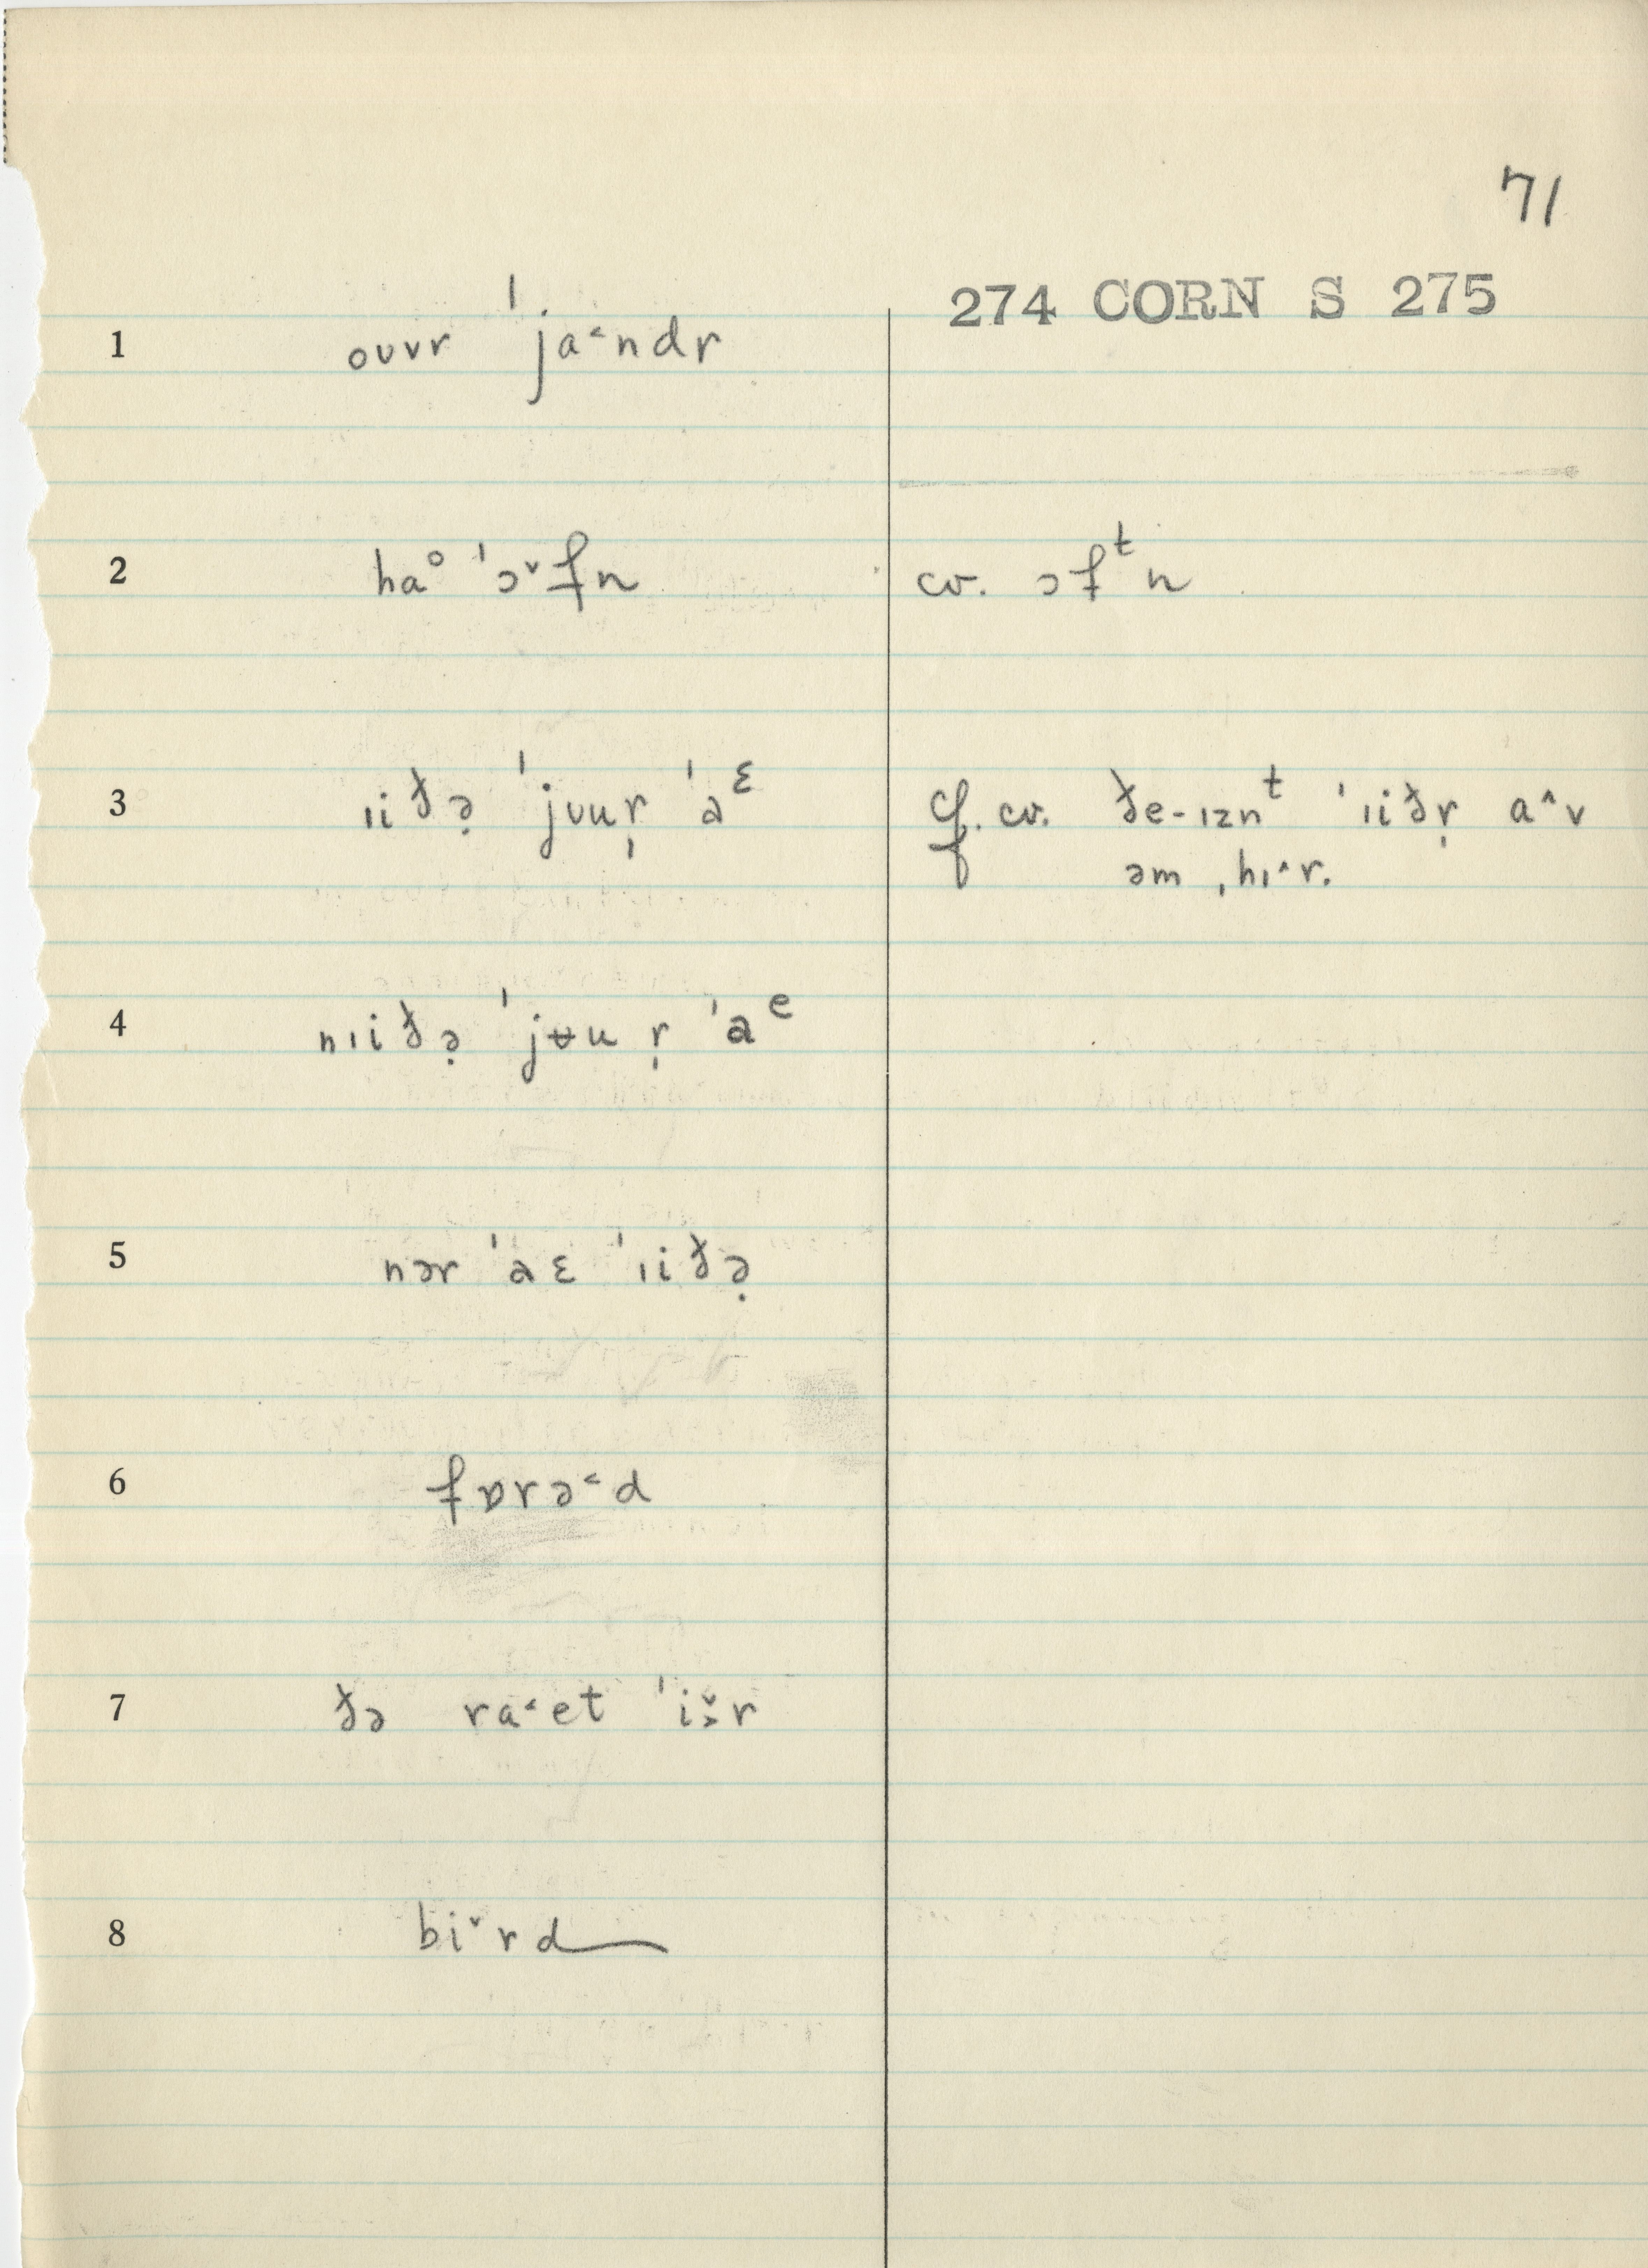 71
274 CORN S 275
1 oʊvr ˈja˂ndr
2 haᵒ ˈɔ˅fn cv. ɔfᵗn
3 ɪiðə̣ ˈjʊur̩ ˈaᵋ cf. cv. ðe-ɪznᵗ ˈɪiðr̩ a˄v
əm ˌhɪ˄r.
4 nɪiðə̣ ˈjʉu r̩ ˈaᵉ
5 nər ˈaɛ ˈɪiðə̣
6 fɒrə˂d
7 ðə ra˂et ˈi˅˃r
8 bi˅rd